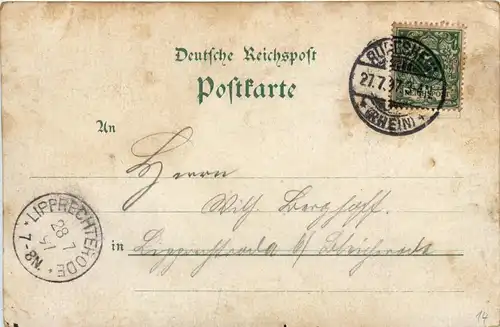 Deutsche Reichspost
Postkarte
RÜDESHEIM
27.7.97
* (RHEIN) *
An
Herrn
Wilh. Berghoff.
in Lipprechterode b/ Bleicherode
LIPPRECHTERODE
28 7
97
7-8N.
14